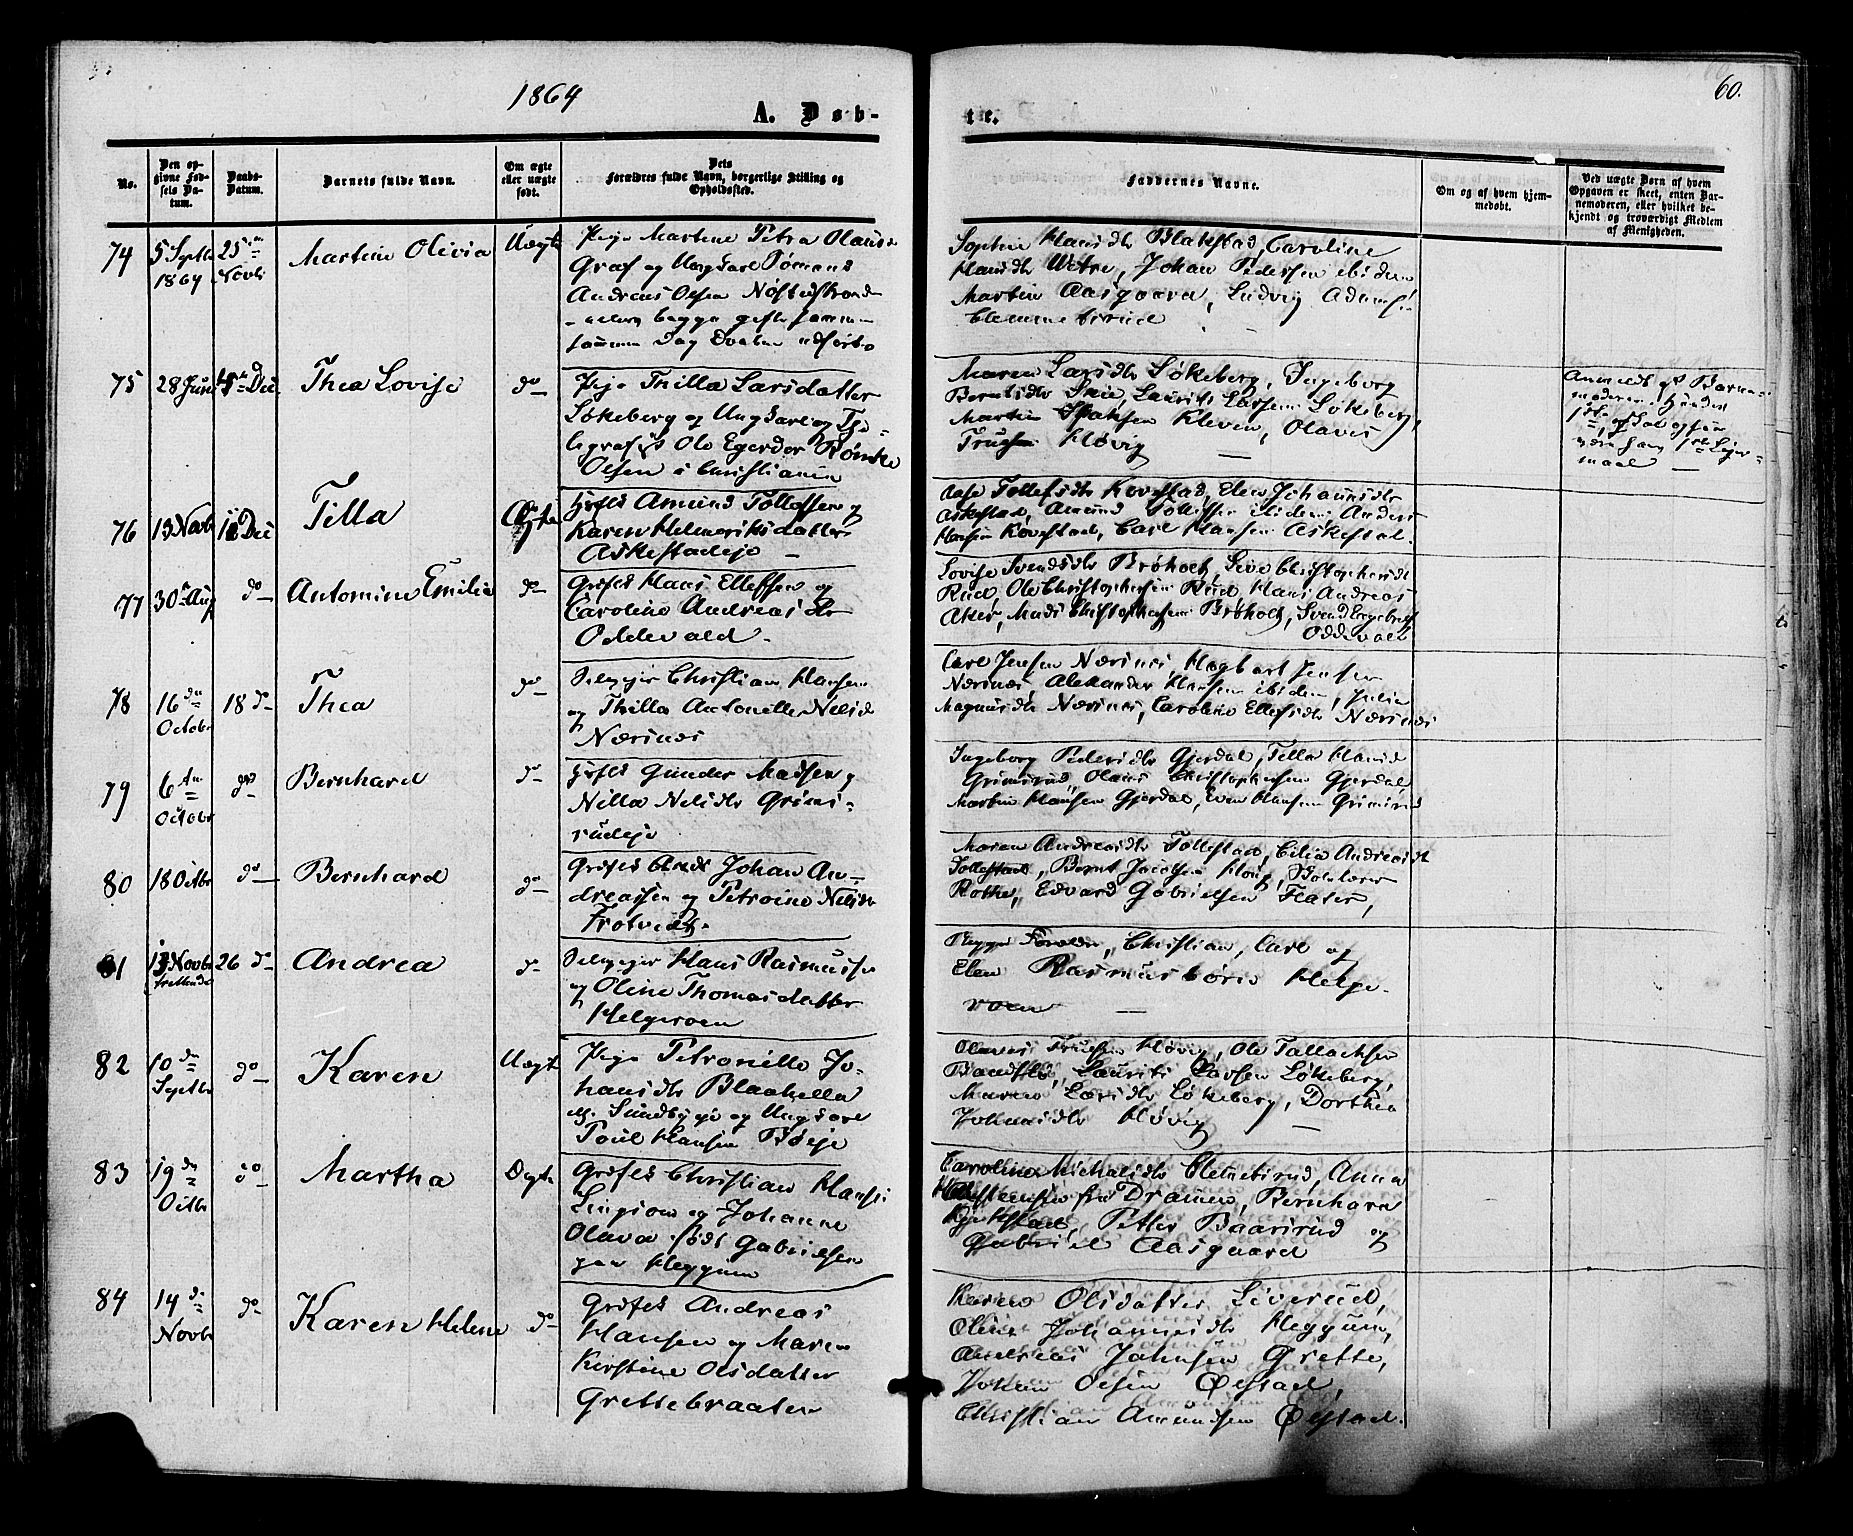 1864
60.
A. Døb-
te.
No.
Den op-
givne Fød-
sels Da-
tum.
Daabs-
Datum.
Barnets fulde Navn.
Om ægte
eller uægte
født.
Dets
Forældres fulde Navn, borgerlige Stilling og
Opholdssted.
Faddernes Navne.
Om og af hvem hjem-
medøbt.
Ved uægte Børn af hvem
Opgaven er skeet, enten Bar-
nemoderen, eller hvilket be-
kjendt og troværdigt Medlem
af Menigheden.
74
5 Septbr
1864
25
Novbr
Martine Olivia
Uægte
Pige Martine Petra Olausd
Graf og Ungkarl Tømmerm
Andreas Olsen Nøstedstranden
begge gifte
Sophie Hansdtr Blakstad, Caroline
Hansdtr Wetre, Johan Pedersen ibidem
Martin Aasgaard, Ludvig
75
28 Juni
Dec
Thea Lovise
do
Pige Thilla Larsdatter
Løkeberg og Ungkarl og Te-
legrafist Ole Egerder Rømke
Olsen i Christiania
Maren Larsdtr Løkeberg, Ingeborg
Berntsdtr Skue, Laurits Larsen Løkeberg,
Martin Kleven, Olaves
Truesen Høvig
Anmeldt af Barne-
moderen
være hans 1ste Leier-
maal
76
13 Novbr
Dec
Tilla
Ægte
Huusf Amund Tollefsen og
Karen Helmeriksdatter
Askestadeje
Aase Tollefsdtr Kovestad, Elen Johannisdtr
Askestad, Amund Tollefsen ibidem, Anders
Hansen Kovestad, Carl Hansen Askestad.
77
30 Aug
do
Antomine Emilie
do
Grdfs Hans Ellefsen og
Caroline Andreasdtr
Oddevald
Lovise Svendsdtr Brøholt, Sive Christophersdtr
Rud, Ole Christophersen Rud, Hans Andreas
Aker, Mads Christophersen Brøholt, Svend Engebret
Oddevald
78
16
Octobr
18 do
Thea
do
Selveier Christian Hansen
og Thilla Antonille Nilsdtr
Nærsnes
Carl Jensen Nærsnes, Hagbart Jensen
Nærsnes, Aleksander Hansen ibidem, Julia
Magnusdtr Nærsnes, Caroline Ellefsdtr Nærsnes
79
6
Octobr
do
Bernhard
do
Huusf Gunder Madsen og
Nilla Nilsdtr Grims-
rudeje
Ingeborg Pedersdtr Gjerdal, Tilla Hansd
Grimsrud, Olaus Christophersen Gjerdal
Martin Hansen Gjerdal, Even Hansen Grimsrud
80
18 Octbr
do
Bernhard
do
Grdfs Johan An-
dreassen og Petroine Nilsdtr
Trotvedt.
Maren Andreasdtr Tollestad, Cilia Andreasdtr
Tollestad, Bernt Jacobsen
Rothe, Edvard Gabrielsen Flater,
81
13 Novbr
trettende
26 do
Andrea
do
Selveier Hans Rasmussen
og Oline Thomasdatter
Helgeroen
Begge Forældre, Christian, Carl og
Elen Rasmusbörn Helge-
roen
82
10
Septbr
do
Karen
Uægte
Pige Petronille Jo-
hansdtr Blaakulla
Sundbyeje og Ungkarl
Poul Hansen Bøeje
Olaves Truesen Høvig, Ole Tallachsen
Laurits Larsen Løkeberg,
Maren Larsdtr Løkeberg, Dorthea
Johansdtr Høvig
83
19
Octbr
do
Martha
Ægte
Grdfs Christian Hansen
Lingsom og Johanne
Olava født Gabrielsen
paa Heggum
Caroline Michelsdtr Clemetsrud, Anna
Christensen fra Dramen, Bernhard
Kjekstad, Petter Baarsrud og
Gabriel Aasgaard
84
14
Novbr
do
Karen Helene
do
Grdfs Andreas
Hansen og Maren
Kirstine Olsdatter
Grettebraaten
Karen Olsdatter Liverud,
Oline Johannesdtr Heggum,
Andreas Johnsen Grette,
Johan Olsen Øvstad,
Christian Amundsen Øvstad.